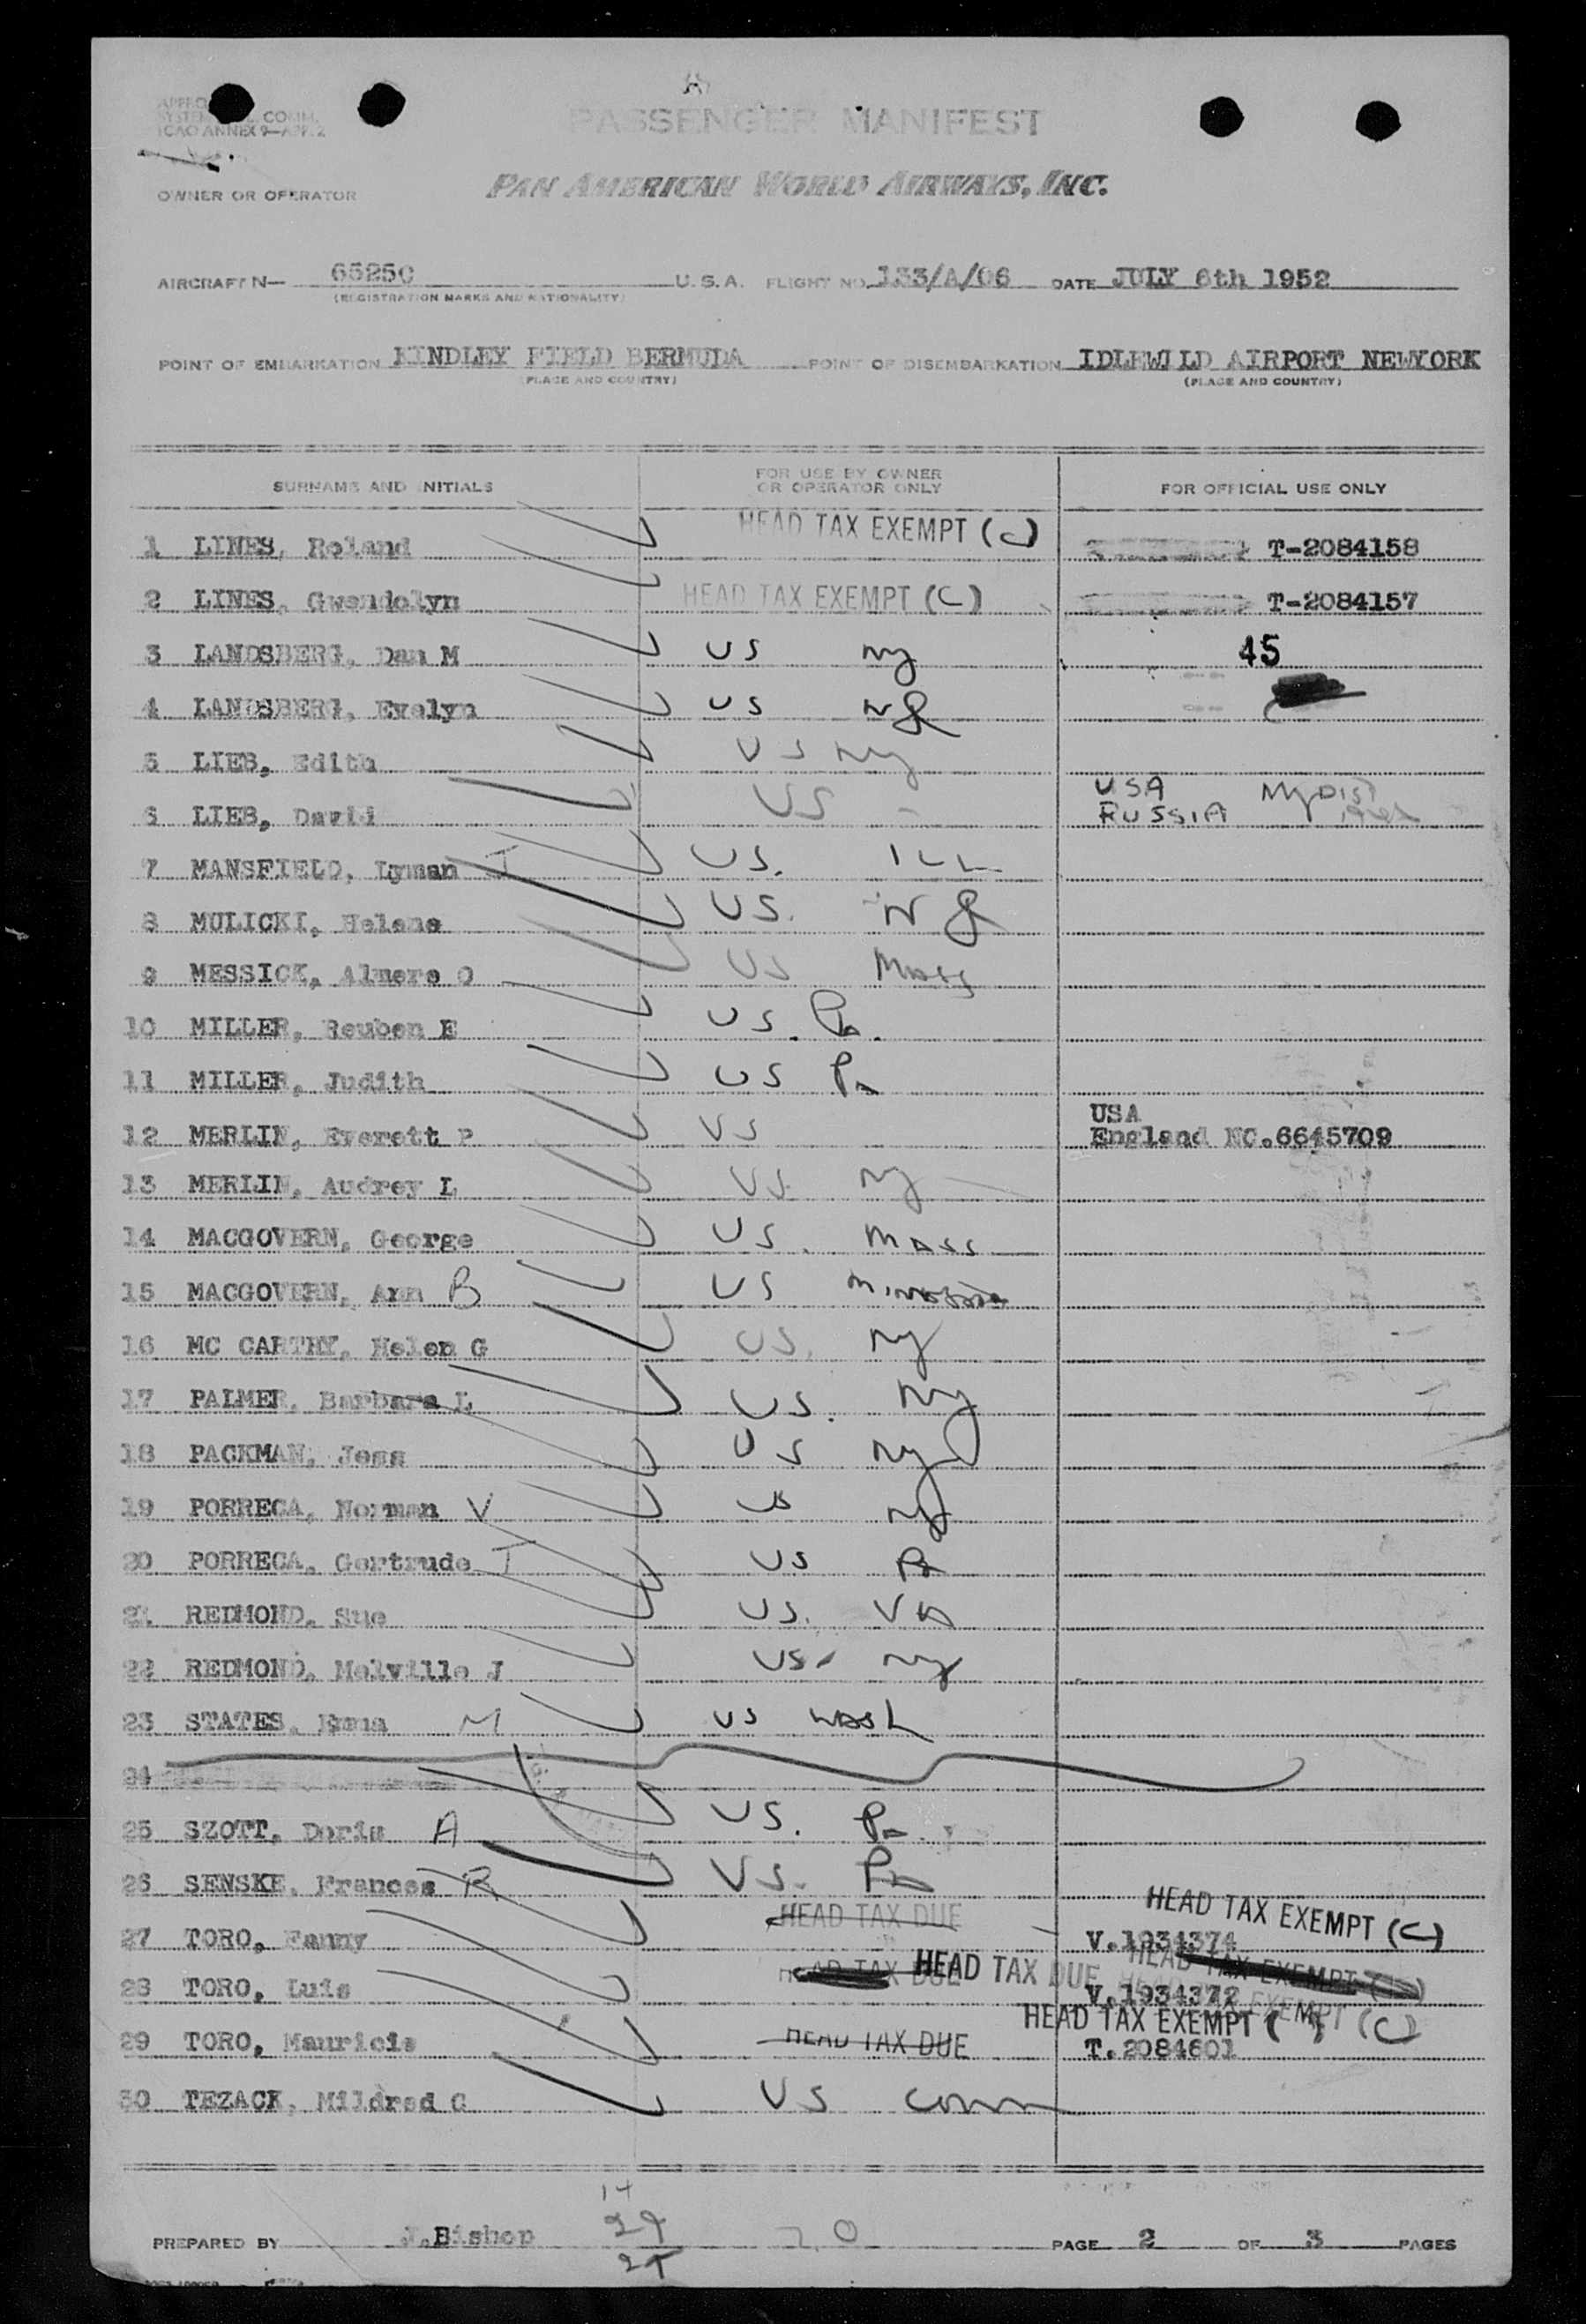 PASSENGER MANIFEST
ICAO ANNEX 9—APP. 2
OWNER OR OPERATOR PAN AMERICAN WORLD AIRWAYS, INC.
AIRCRAFT N— 65250 U.S.A. FLIGHT NO. 133/A/06 DATE JULY 6th 1952
(REGISTRATION MARKS AND NATIONALITY)
POINT OF EMBARKATION KINDLEY FIELD BERMUDA POINT OF DISEMBARKATION IDLEWILD AIRPORT NEWYORK
(PLACE AND COUNTRY) (PLACE AND COUNTRY)
SURNAME AND INITIALS FOR USE BY OWNER OR OPERATOR ONLY FOR OFFICIAL USE ONLY
1 LINES, Roland HEAD TAX EXEMPT (C) T-2084158
2 LINES, Gwendolyn HEAD TAX EXEMPT (C) T-2084157
3 LANDSBERG, Dan M US NY 45
4 LANDSBERG, Evelyn US NJ
5 LIEB, Edith US NY
6 LIEB, David US USA NY DIST
RUSSIA
7 MANSFIELD, Lyman J US. ILL
8 MULICKI, Helene US. NJ
9 MESSICK, Almere O US Mass
10 MILLER, Reuben E US. Pa.
11 MILLER, Judith US Pa
12 MERLIN, Everett P US USA
England NO.6645709
13 MERLIN, Audrey L US NY
14 MACGOVERN, George US. Mass
15 MACGOVERN, Ann B US
16 MC CARTHY, Helen G US. NY
17 PALMER, Barbara L US. NY
18 PACKMAN, Jess US NY
19 PORRECA, Norman V US NJ
20 PORRECA, Gertrude T US Pa
21 REDMOND, Sue US. VA
22 REDMOND, Melville J US. NY
23 STATES, Emma M US Wash
24
25 SZOTT, Doris A US. Pa
26 SENSKE, Frances R US. Pa
27 TORO, Fanny HEAD TAX DUE HEAD TAX EXEMPT (C)
V.1934374
28 TORO, Luis HEAD TAX DUE HEAD TAX DUE HEAD TAX EXEMPT (C)
V.1934372
29 TORO, Mauricio HEAD TAX DUE HEAD TAX EXEMPT (C)
T.2084601
30 TEZACK, Mildred C US Conn
14
29
PREPARED BY J.Bishop 20 PAGE 2 OF 3 PAGES